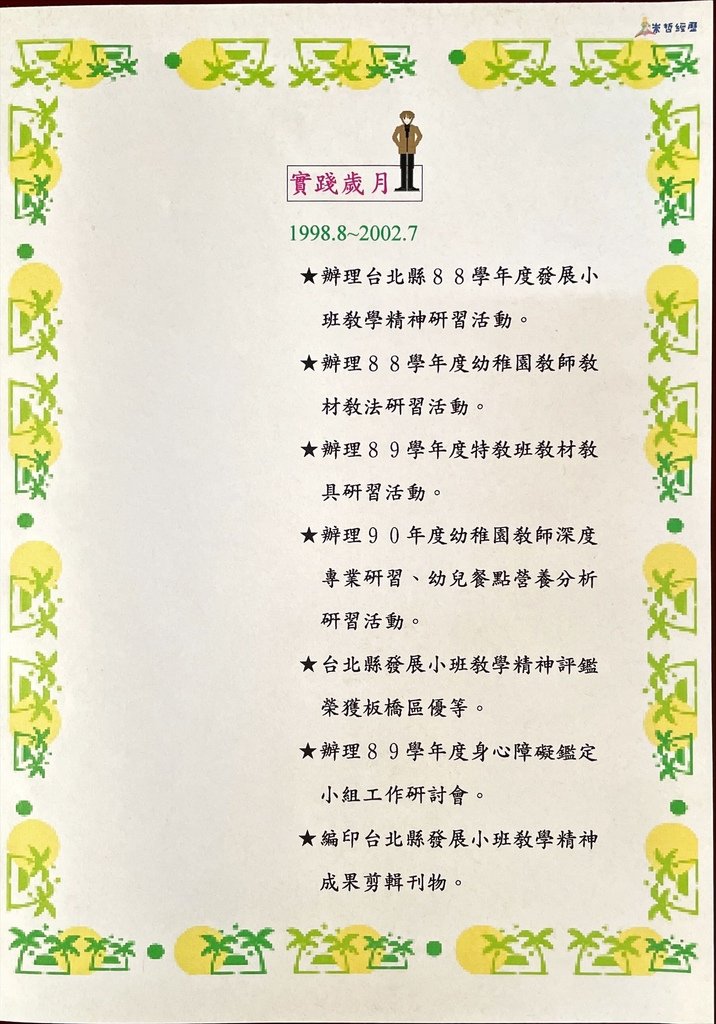 崇哲經歷
實踐歲月
1998.8~2002.7
★辦理台北縣８８學年度發展小
班教學精神研習活動。
★辦理８８學年度幼稚園教師教
材教法研習活動。
★辦理８９學年度特教班教材教
具研習活動。
★辦理９０年度幼稚園教師深度
專業研習、幼兒餐點營養分析
研習活動。
★台北縣發展小班教學精神評鑑
榮獲板橋區優等。
★辦理８９學年度身心障礙鑑定
小組工作研討會。
★編印台北縣發展小班教學精神
成果剪輯刊物。